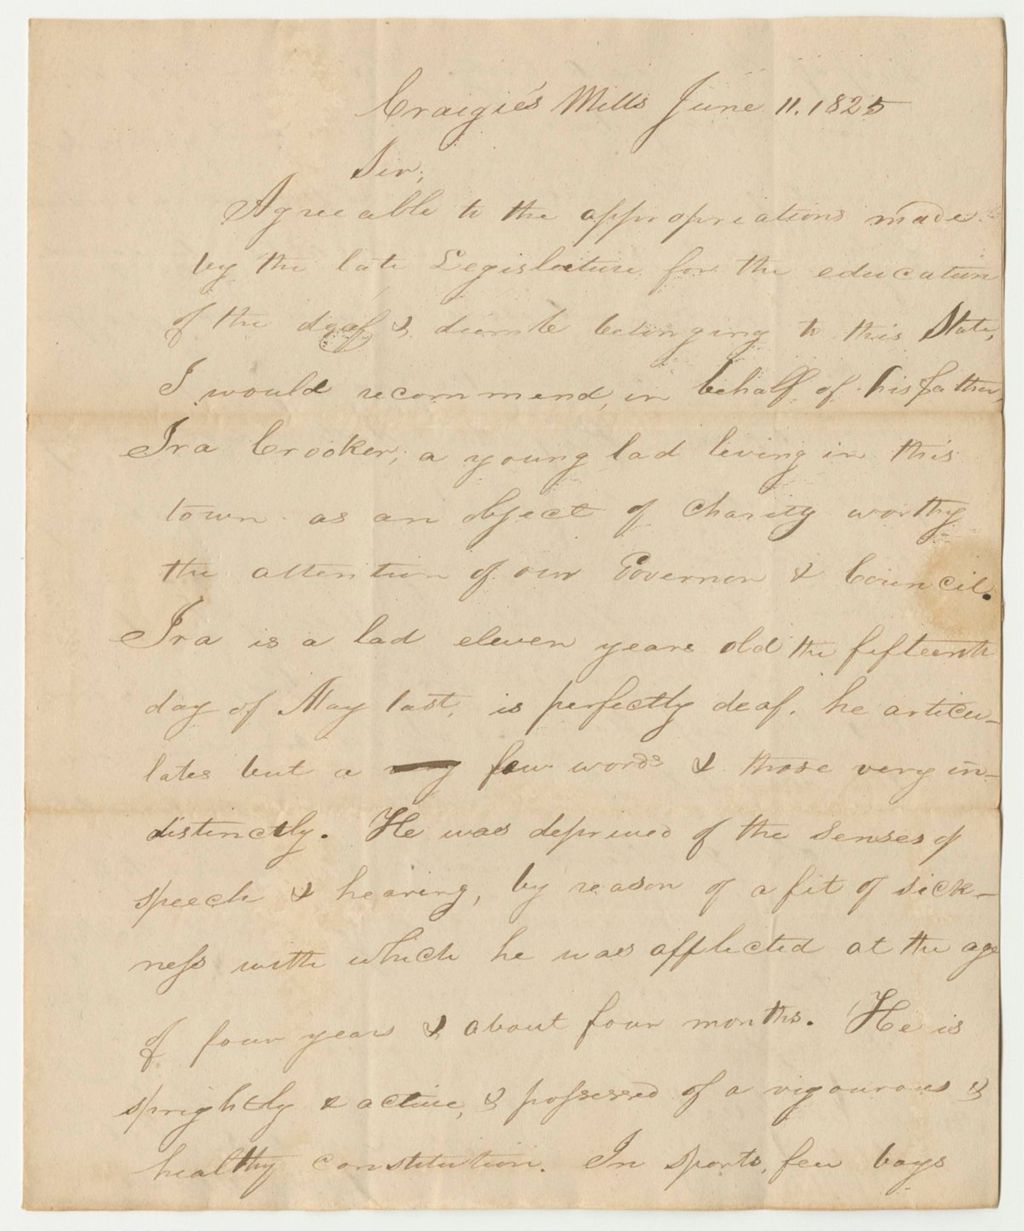 Craigie's Mills June 11. 1825
Sir,
Agreeable to the appropriations made
by the late Legislature for the education
of the deaf & dumb belonging to this State,
I would recommend, in behalf of his father,
Ira Crooker, a young lad living in this
town as an object of charity worthy
the attention of our Governor & Council.
Ira is a lad eleven years old the fifteenth
day of May last, is perfectly deaf. he articu-
lates but a few words & those very in-
distinctly. He was deprived of the senses of
speech & hearing, by reason of a fit of sick-
ness with which he was afflicted at the age
of four year & about four months. He is
sprightly & active, & possessed of a vigourous &
healthy constitution. In sports, few boys